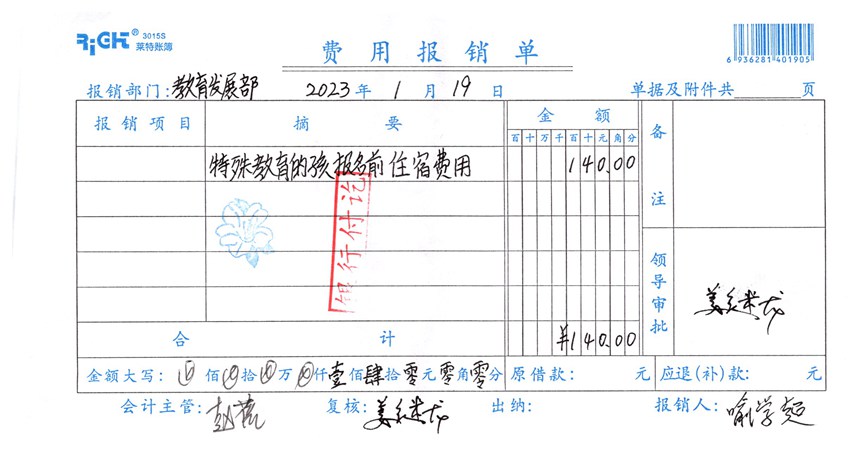 RiGHT® 3015S
莱特账簿
费用报销单
6 936281 401905
报销部门:教育发展部 2023年1月19日 单据及附件共 页
报销项目 摘要 金额 备注
百十万千百十元角分
特殊教育的孩报名前住宿费用 140.00
银行付讫
领导审批
合计 ¥140.00
金额大写: 佰 拾 万 仟壹佰肆拾零元零角零分 原借款: 元 应退(补)款: 元
会计主管: 复核: 出纳: 报销人:喻学超